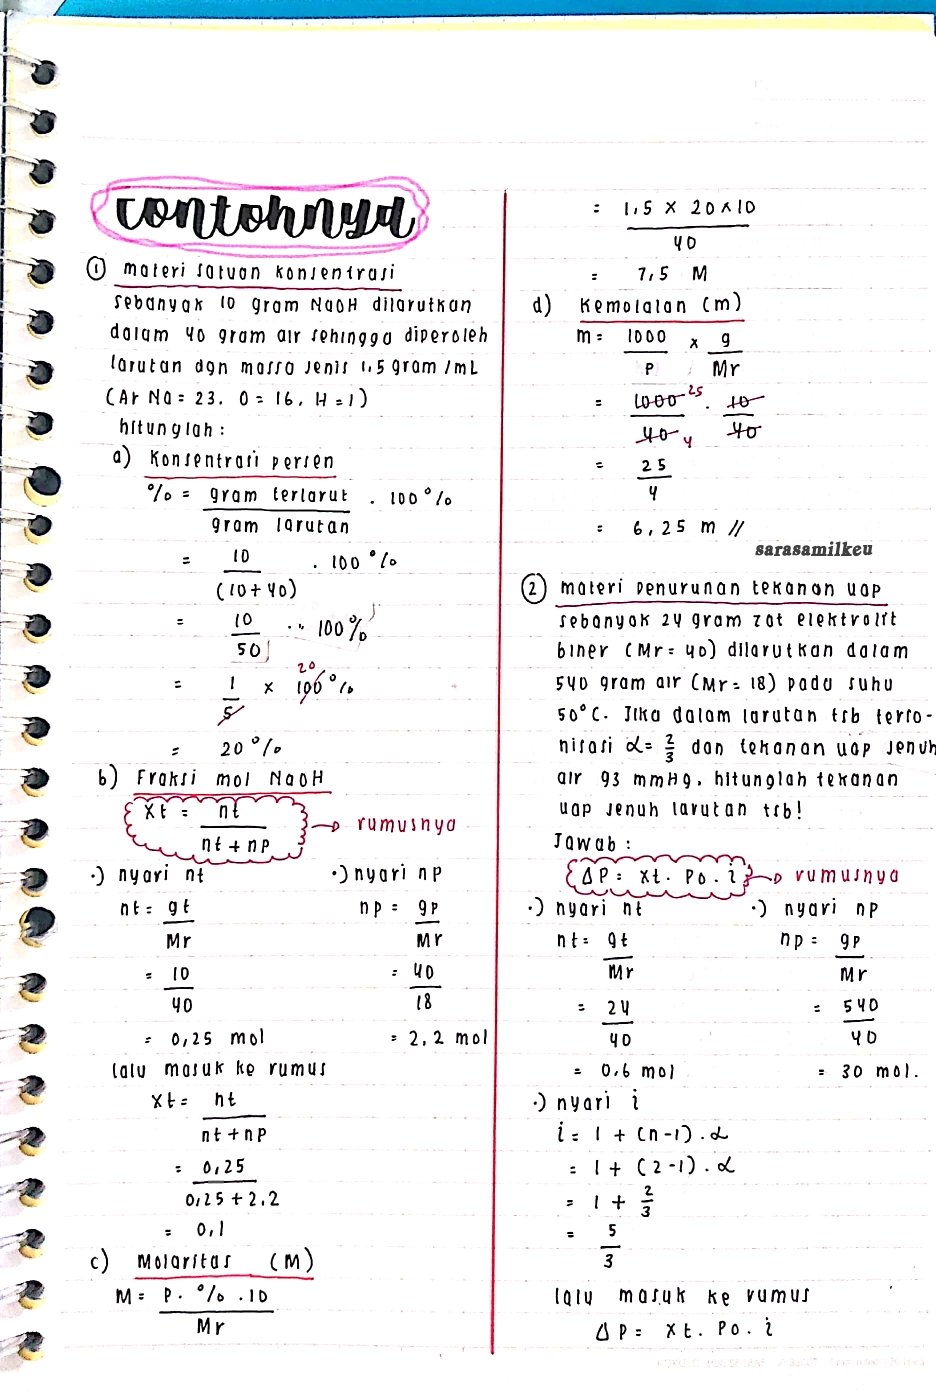 contohnya
① materi satuan konsentrasi
sebanyak 10 gram NaOH dilarutkan
dalam 40 gram air sehingga diperoleh
larutan dgn massa jenis 1,5 gram/mL
(Ar Na = 23, O = 16, H = 1)
hitunglah :
a) Konsentrasi persen
% = gram terlarut / gram larutan . 100%
= 10 / (10+40) . 100%
= 10 / 50 . 100%
= 1 / 5 × 100% 20
= 20%
b) Fraksi mol NaOH
Xt = nt / nt + np → rumusnya
·) nyari nt ·) nyari np
nt = gt / Mr np = gp / Mr
= 10 / 40 = 40 / 18
= 0,25 mol = 2,2 mol
lalu masuk ke rumus
Xt = nt / nt + np
= 0,25 / 0,25 + 2,2
= 0,1
c) Molaritas (M)
M = P . % . 10 / Mr
= 1,5 × 20 × 10 / 40
= 7,5 M
d) Kemolalan (m)
m = 1000 / P × g / Mr
= 1000 25 / 40 4 . 10 / 40
= 25 / 4
= 6,25 m //
sarasamilkeu
② materi penurunan tekanan uap
sebanyak 24 gram zat elektrolit
biner (Mr = 40) dilarutkan dalam
540 gram air (Mr = 18) pada suhu
50°C. Jika dalam larutan tsb terio-
nisasi α = 2/3 dan tekanan uap jenuh
air 93 mmHg, hitunglah tekanan
uap jenuh larutan tsb!
Jawab :
ΔP = Xt . Po . i → rumusnya
·) nyari nt ·) nyari np
nt = gt / Mr np = gp / Mr
= 24 / 40 = 540 / 40
= 0,6 mol = 30 mol.
·) nyari i
i = 1 + (n-1) . α
= 1 + (2-1) . α
= 1 + 2/3
= 5 / 3
lalu masuk ke rumus
ΔP = Xt . Po . i